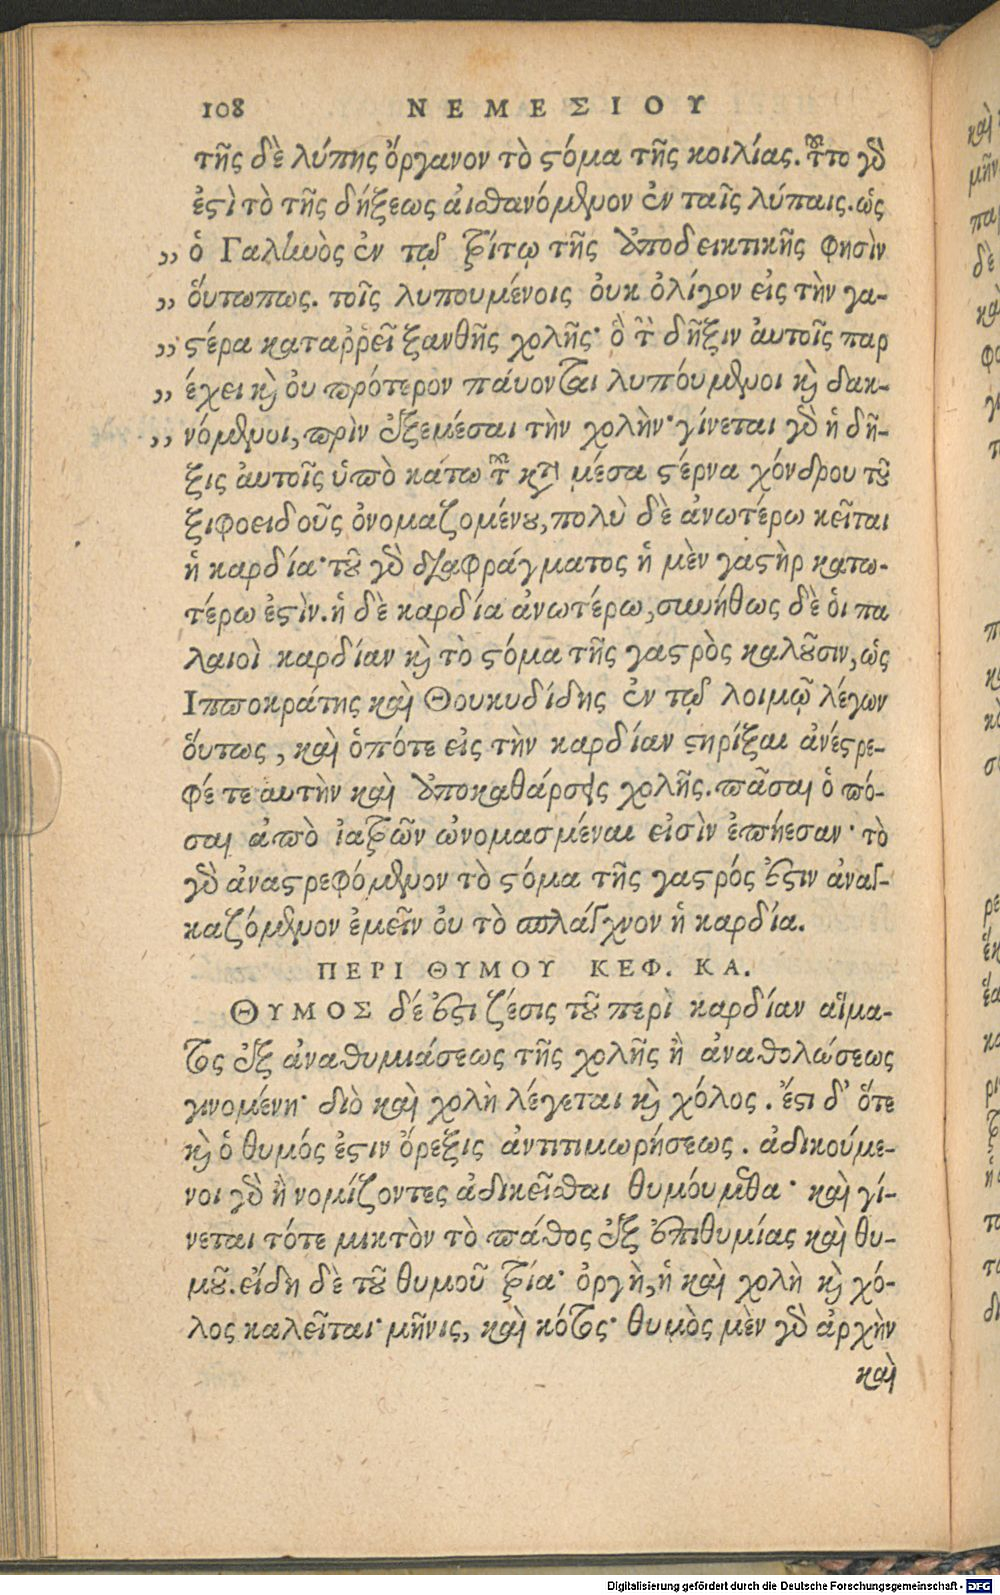 108 ΝΕΜΕΣΙΟΥ
τῆς δὲ λύπης ὄργανον τὸ ςόμα τῆς κοιλίας. τοῦτο γὸ
ἐςὶ τὸ τῆς δήξεως αἰσθανόμενον ἐν ταῖς λύπαις. ὡς
,, ὁ Γαλίωὸς ἐν τῷ τρίτῳ τῆς ἀποδεικτικῆς φησὶν
,, ὅυτωπως. τοῖς λυπουμένοις ὀυκ ὀλίγον εἰς τὴν γα-
,, ςέρα καταῤῥεῖ ξανθῆς χολῆς· ὃ τὴν δῆξιν ἀυτοῖς παρ
,, έχει κὶ ὀυ πρότερον πάυονται λυπόυμενοι κὶ δακ-
,, νόμενοι, πρὶν ἐξεμέσαι τὴν χολὴν· γίνεται γὸ ἡ δῆ-
ξις ἀυτοῖς ὑπὸ κάτω τοῦ κατὰ μέσα ςέρνα χόνδρου τȣ͂
ξιφοειδοῦς ὀνομαζομένȣ, πολὺ δὲ ἀνωτέρω κεῖται
ἡ καρδία· τȣ͂ γὸ διαφράγματος ἡ μὲν γαςὴρ κατω-
τέρω ἐςὶν. ἡ δὲ καρδία ἀνωτέρω, συνήθως δὲ ὁι πα
λαιοὶ καρδίαν κὶ τὸ ςόμα τῆς γαςρὸς καλȣ͂σιν, ὡς
Ιπποκράτης καὶ Θουκυδίδης ἐν τῷ λοιμῷ λέγων
ὅυτως, καὶ ὁπότε εἰς τὴν καρδίαν ςηρίξαι ἀνέςρε-
φέ τε αυτὴν καὶ ἀποκαθάρσεις χολῆς. πᾶσαι ὁπό-
σαι ἀπὸ ἰατρῶν ὠνομασμέναι εἰσὶν ἐπήεσαν· τὸ
γὸ ἀναςρεφόμενον τὸ ςόμα τῆς γαςρός ἐςιν ἀναγ-
καζόμενον ἐμεῖν ὀυ τὸ σπλάγχνον ἡ καρδία.
ΠΕΡΙ ΘΥΜΟΥ ΚΕΦ. ΚΑ.
ΘΥΜΟΣ δέ ἐςι ζέσις τȣ͂ περὶ καρδίαν αἵμα-
τος ἐξ ἀναθυμιάσεως τῆς χολῆς ἢ ἀναθολώσεως
γινομένη· διὸ καὶ χολὴ λέγεται κὶ χόλος. ἔςι δ' ὅτε
κὶ ὁ θυμός ἐςιν ὄρεξις ἀντιτιμωρήσεως. ἀδικούμε-
νοι γὸ ἢ νομίζοντες ἀδικεῖσθαι θυμόυμεθα· καὶ γί-
νεται τότε μικτὸν τὸ πάθος ἐξ ἐπιθυμίας καὶ θυ-
μȣ͂. εἴδη δὲ τȣ͂ θυμοῦ τρία· ὀργὴ, ἡ καὶ χολὴ κὶ χό-
λος καλεῖται· μῆνις, καὶ κότος· θυμὸς μὲν γὸ ἀρχὴν
καὶ
Digitalisierung gefördert durch die Deutsche Forschungsgemeinschaft - DFG